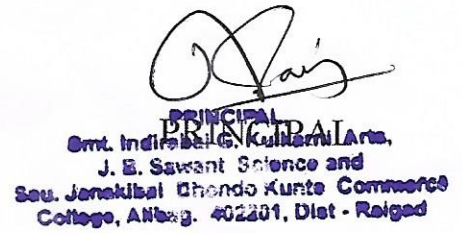 PRINCIPAL
PRINCIPAL
Smt. Indirabai G. Kulkarni Arts,
J. B. Sawant Science and
Sau. Janakibai Dhondo Kunte Commerce
College, Alibag. 402201, Dist - Raigad